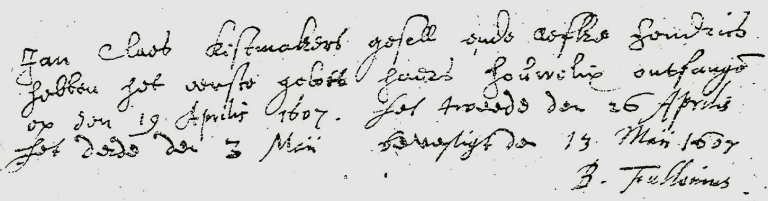 Jan Claes kistmakers gesell ende Aefke hendrics
hebben het eerste gebott haers houwelix ontfangē
op den 19 Aprilis 1607. het tweede den 26 Aprilis
het derde den 3 Maii bevestigt den 13 Maii 1607
B. Fullenius.